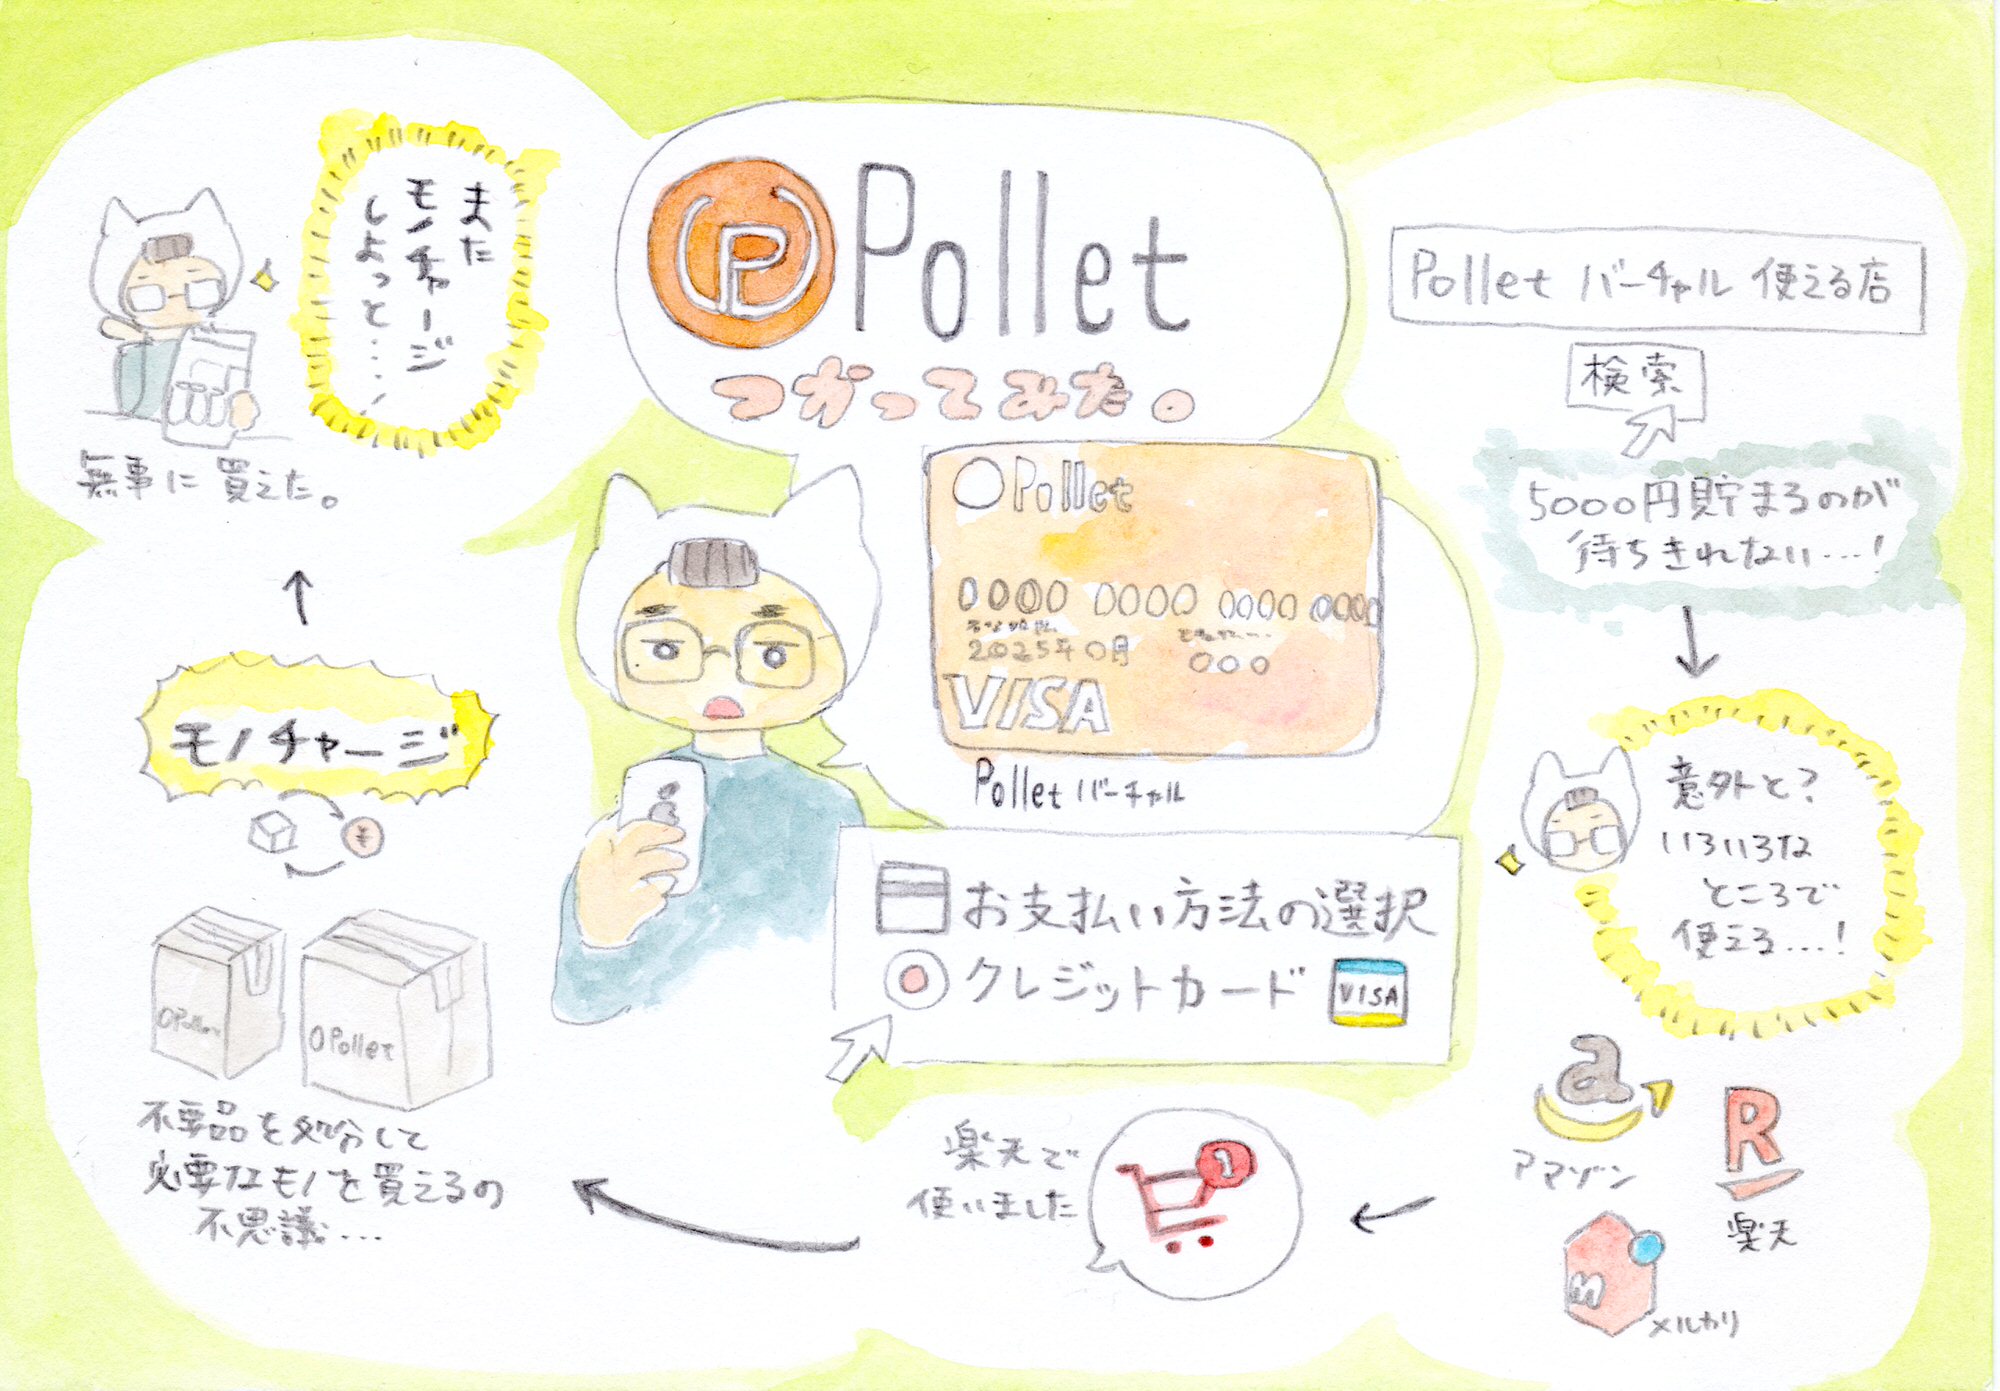 Pollet
つかってみた。
Pollet
0000 0000 0000 0000
2025年0月
000
VISA
Pollet バーチャル
お支払い方法の選択
クレジットカード VISA
Pollet バーチャル 使える店
検索
5000円貯まるのが
待ちきれない…!
意外と?
いろいろな
ところで
使える…!
a
アマゾン
R
楽天
m
メルカリ
楽天で
使いました
1
モノチャージ
¥
Pollet
Pollet
不要品を処分して
必要なモノを買えるの
不思議…
また
モノチャージ
しよっと…
無事に買えた。